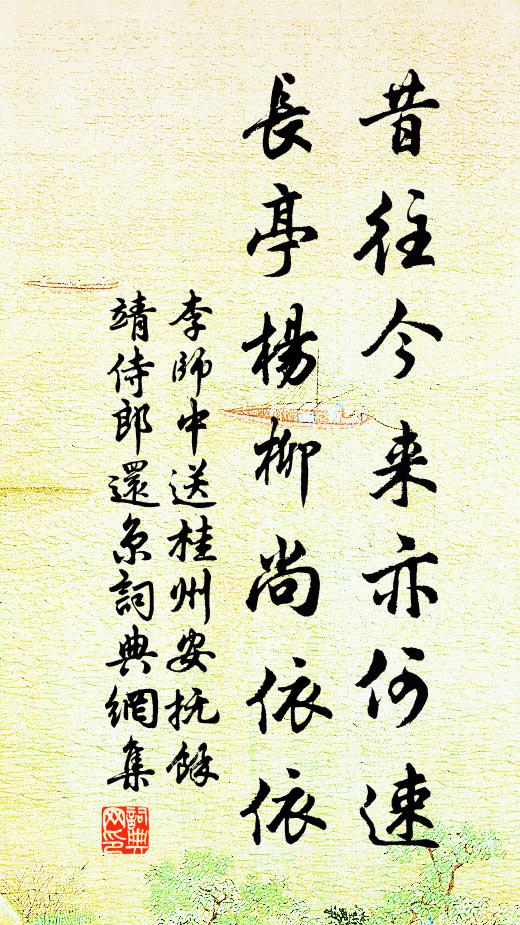 昔往今来亦何速
長亭楊柳尚依依
李師中送桂州安抚餘
靖侍郎還京詞典網集
詞典
网印